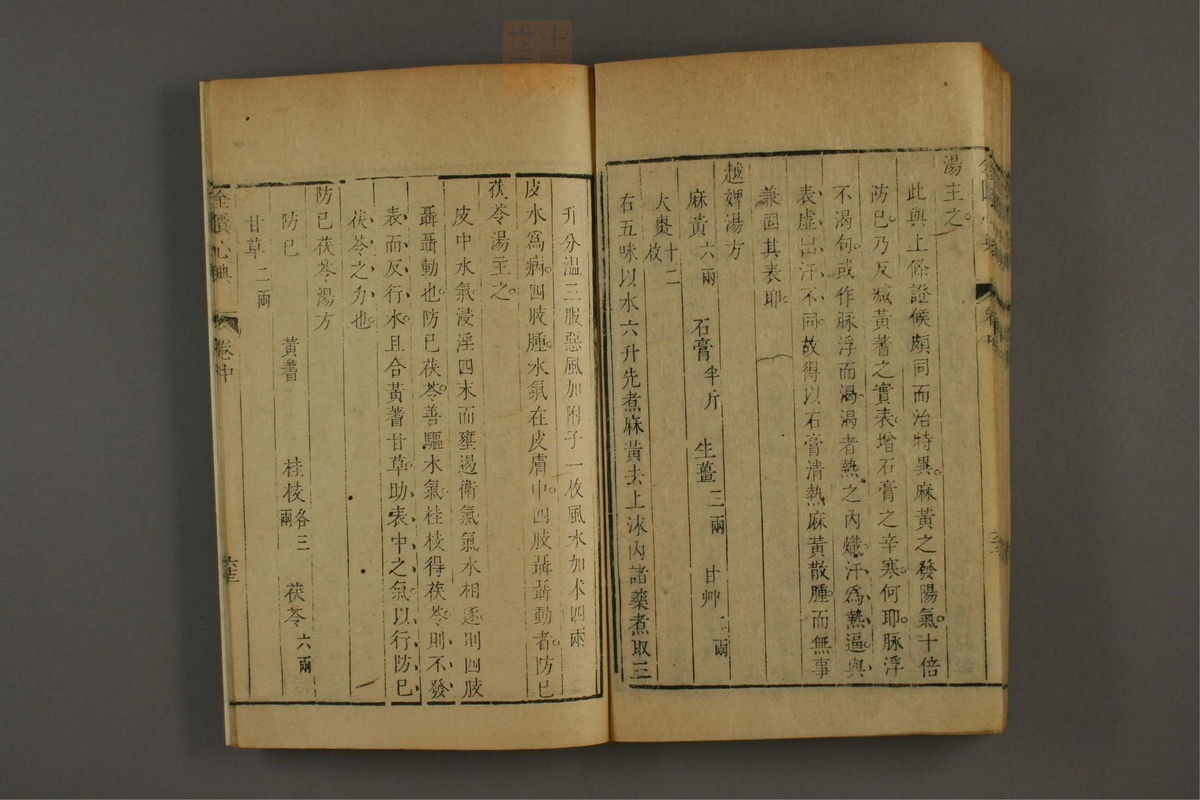 湯主之
此與上條證候頗同而治特異麻黃之發陽氣十倍
防已乃反減黃蓍之實表增石膏之辛寒何耶脉浮
不渴句或作脉浮而渴渴者熱之內熾汗爲熱逼與
表虛出汗不同故得以石膏清熱麻黃散腫而無事
兼固其表耶
越婢湯方
麻黃六兩 石膏半斤 生薑三兩 甘艸二兩
大棗十二枚
右五味以水六升先煮麻黃去上沫內諸藥煮取三
升分温三服惡風加附子一枚風水加术四兩
皮水爲病四肢腫水氣在皮膚中四肢聶聶動者防已
茯苓湯主之
皮中水氣浸淫四末而壅遏衛氣氣水相逐則四肢
聶聶動也防已茯苓善驅水氣桂枝得茯苓則不發
表而反行水且合黃蓍甘草助表中之氣以行防已
茯苓之力也
防已茯苓湯方
防已 黃耆 桂枝各三兩 茯苓六兩
甘草二兩
金匱心典 卷中 六十三